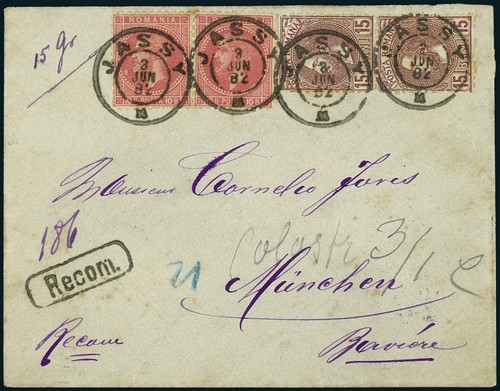 15 gr
ROMANIA ROMANIA
JASSY 3 JUN 82 JASSY 3 JUN 82 JASSY 3 JUN 82 JASSY 3 JUN 82
15 15 15 15
Monsieur Cornelio Joris
186
Recom.
21
3/1
München
Recom
Bavière